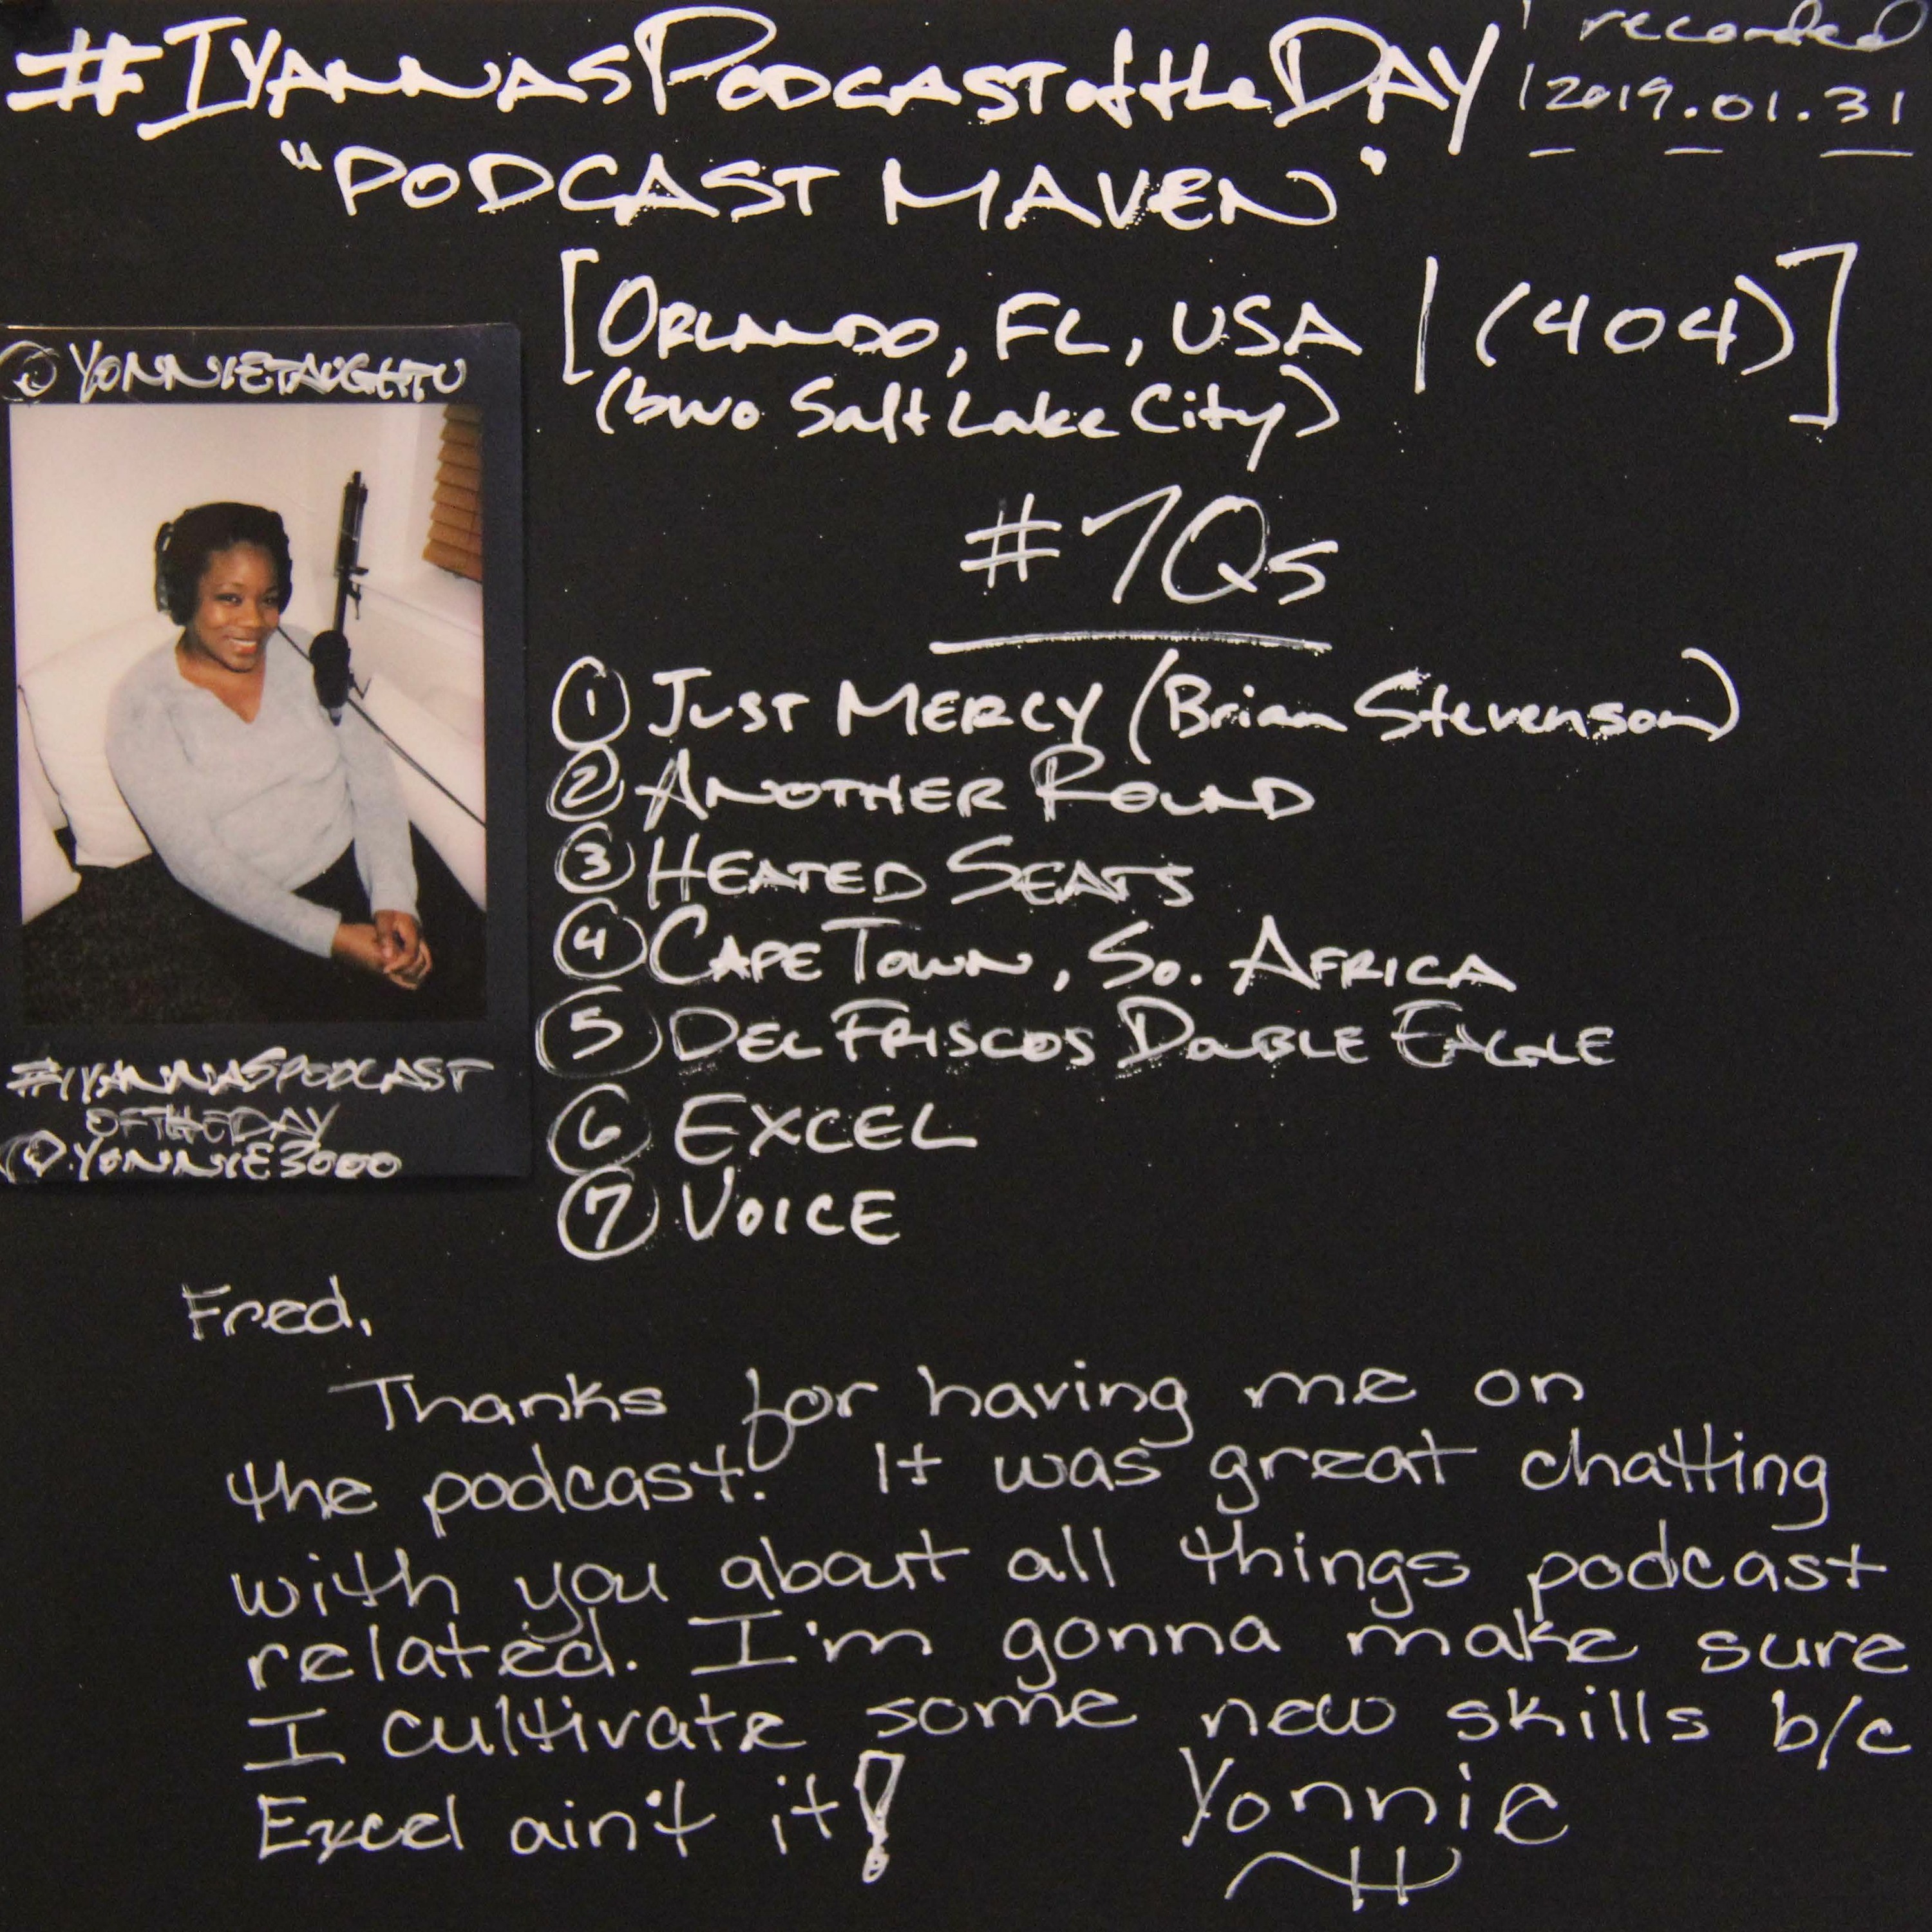 #IYANNASPODCASToftheDAY
recorded
2019.01.31
"PODCAST MAVEN"
[ORLANDO, FL, USA | (404)]
(bwo Salt Lake City)
@YONNIETAUGHTU
#IYANNASPODCAST
OFTHEDAY
@YONNIE3000
#7Qs
1 JUST MERCY (Brian Stevenson)
2 ANOTHER ROUND
3 HEATED SEATS
4 CAPE TOWN, So. AFRICA
5 DEL FRISCOS DOUBLE EAGLE
6 EXCEL
7 VOICE
Fred,
Thanks for having me on
the podcast! It was great chatting
with you about all things podcast
related. I'm gonna make sure
I cultivate some new skills b/c
Excel ain't it!
Yonnie